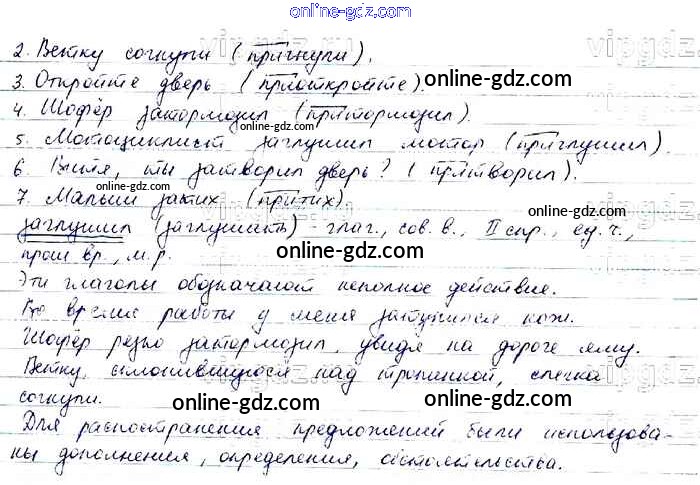 online-gdz.com
2. Ветку согнули (пригнули).
3. Откройте дверь (приоткройте).
online-gdz.com
4. Шофёр затормозил (притормозил).
online-gdz.com
5. Мотоциклист заглушил мотор (приглушил).
6. Витя, ты затворил дверь? (притворил).
online-gdz.com
7. Малыш затих (притих).
online-gdz.com
заглушил (заглушить) - глаг., сов. в., II спр., ед. ч.,
прош вр., м. р.
online-gdz.com
Эти глаголы обозначают неполное действие.
Во время работы у меня затупился нож.
online-gdz.com
Шофёр резко затормозил, увидя на дороге яму.
Ветку, склонившуюся над тропинкой, слегка
согнули.
online-gdz.com
online-gdz.com
Для распостранения предложений были использова-
ны дополнения, определения, обстоятельства.
online-gdz.com
vipgdz
vipgdz